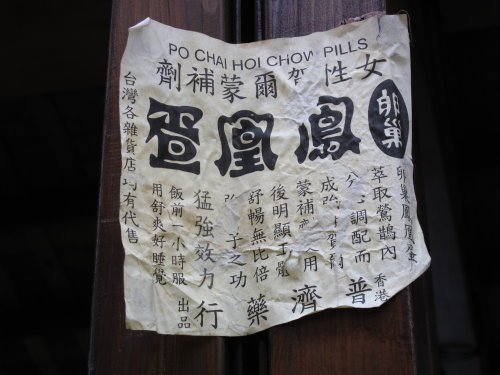 PO CHAI HOI CHOW PILLS
女性賀爾蒙補劑
卵巢
鳳凰蛋
卵巢鳳凰蛋
萃取鶯鵲內
調配而
成 賀爾
蒙補 用
後明顯玉體
舒暢無比倍
子之功
猛強效力
飯前一小時服
用舒爽好睡覺
香港
普濟藥行
出品
台灣各雜貨店均有代售